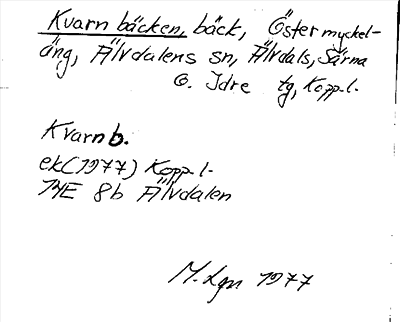 Kvarnbäcken, bäck, Östermyckel-
äng, Älvdalens sn, Älvdals, Särna
o. Idre tg, Kopp. l.
Kvarnb.
ek (1977) Kopp. l.
14E 8b Älvdalen
M. Lgn 1977